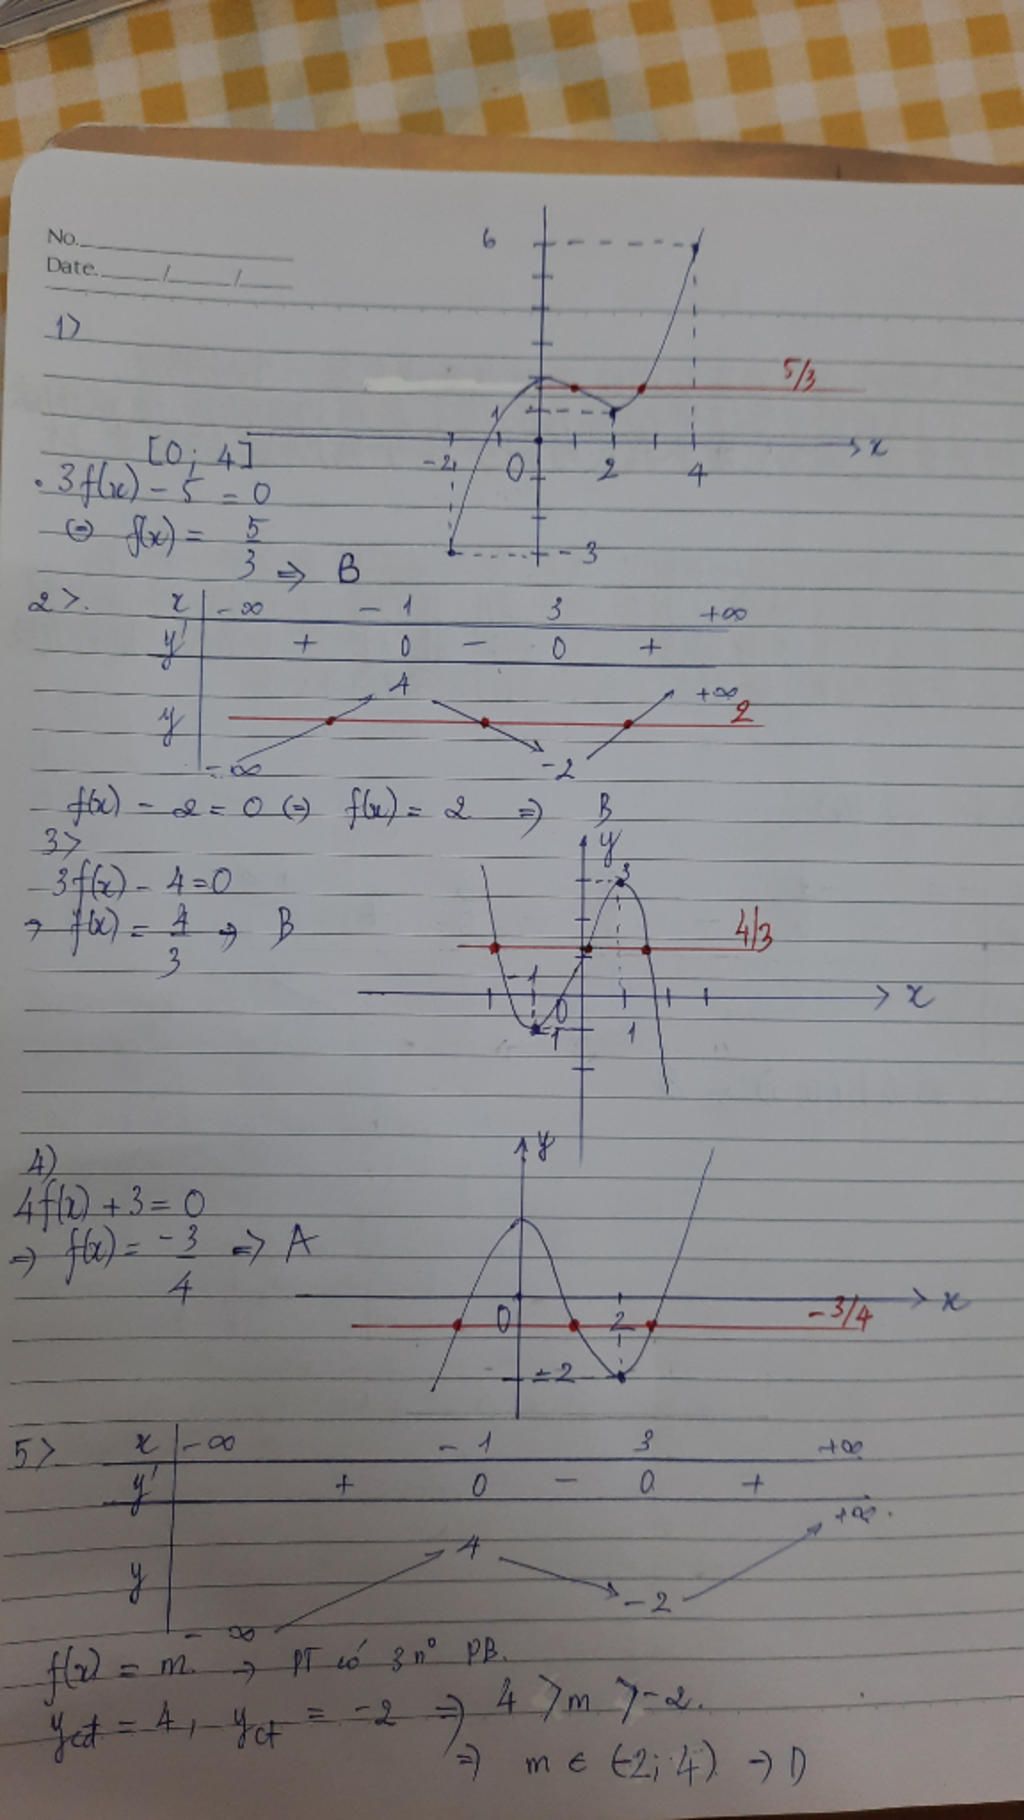 No.
Date. / /
1>
6
5/3
1
x
-2 0 2 4
-3
[0; 4]
. 3f(x) - 5 = 0
⇔ f(x) = 5/3 ⇒ B
2>. x -∞ -1 3 +∞
y' + 0 - 0 +
y -∞ 4 -2 +∞
2
f(x) - 2 = 0 ⇔ f(x) = 2 ⇒ B
3>
3f(x) - 4 = 0
⇒ f(x) = 4/3 ⇒ B
y
3
4/3
-1
x
0
-1
1
4)
4f(x) + 3 = 0
⇒ f(x) = -3/4 ⇒ A
y
x
0 2 -3/4
-2
5> x -∞ -1 3 +∞
y' + 0 - 0 +
y -∞ 4 -2 +∞.
f(x) = m. ⇒ PT có 3 n° PB.
ycđ = 4, yct = -2 ⇒ 4 > m > -2.
⇒ m ∈ (-2; 4) → D